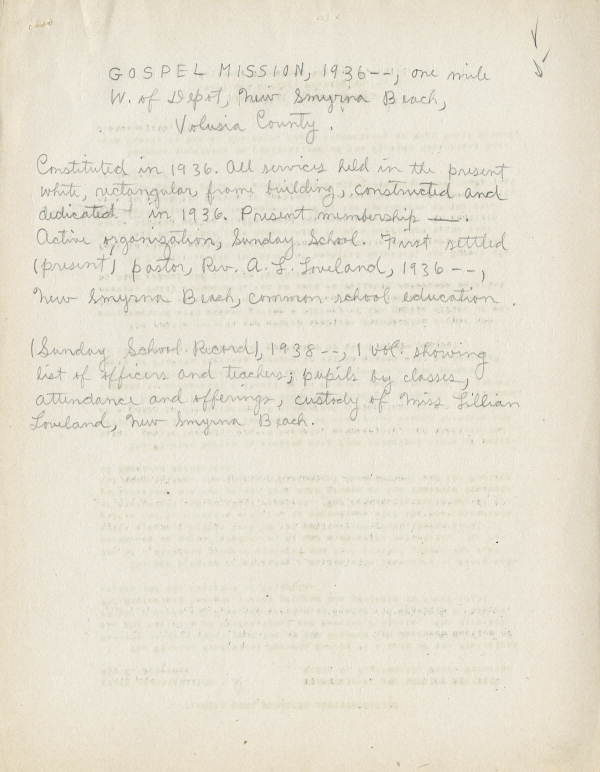 GOSPEL MISSION, 1936--, one mile
W. of Depot, New Smyrna Beach,
Volusia County.
Constituted in 1936. All services held in the present
white, rectangular, frame building, constructed and
dedicated in 1936. Present membership —.
Active organization, Sunday School. First settled
(present) pastor, Rev. A. L. Loveland, 1936--,
New Smyrna Beach, common school education.
(Sunday School Record), 1938--, 1 vol. showing
list of officers and teachers; pupils by classes,
attendance and offerings, custody of Miss Lillian
Loveland, New Smyrna Beach.